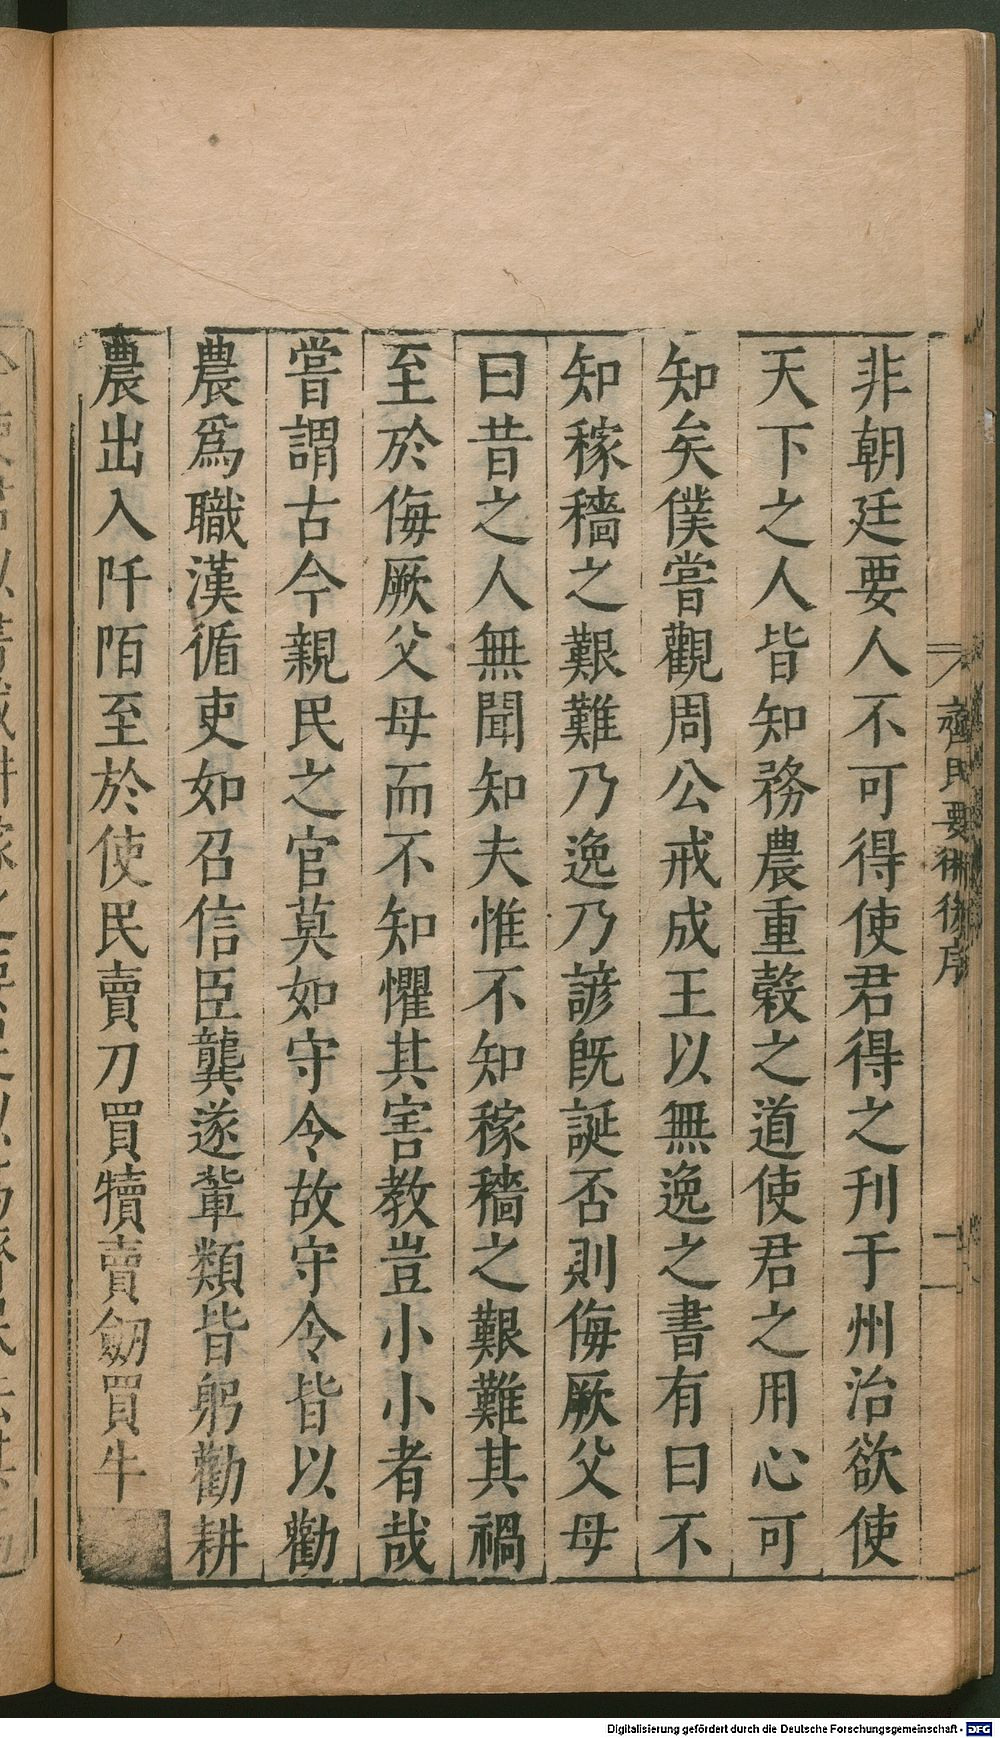 齊民要術後序
二
非朝廷要人不可得使君得之刋于州治欲使
天下之人皆知務農重穀之道使君之用心可
知矣僕嘗觀周公戒成王以無逸之書有曰不
知稼穡之艱難乃逸乃諺旣誕否則侮厥父母
曰昔之人無聞知夫惟不知稼穡之艱難其禍
至於侮厥父母而不知懼其害教豈小小者哉
嘗謂古今親民之官莫如守令故守令皆以勸
農爲職漢循吏如召信臣龔遂輩類皆躬勸耕
農出入阡陌至於使民賣刀買犢賣劒買牛
Digitalisierung gefördert durch die Deutsche Forschungsgemeinschaft - DFG